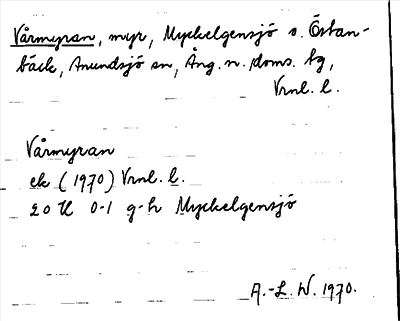 Vårmyran, myr, Myckelgensjö o. Östan-
bäck, Anundsjö sn, Ång. n. doms. tg,
Vrnl. l.
Vårmyran
ek (1970) Vrnl. l.
20 H 0-1 g-h Myckelgensjö
A.-L. W. 1970.